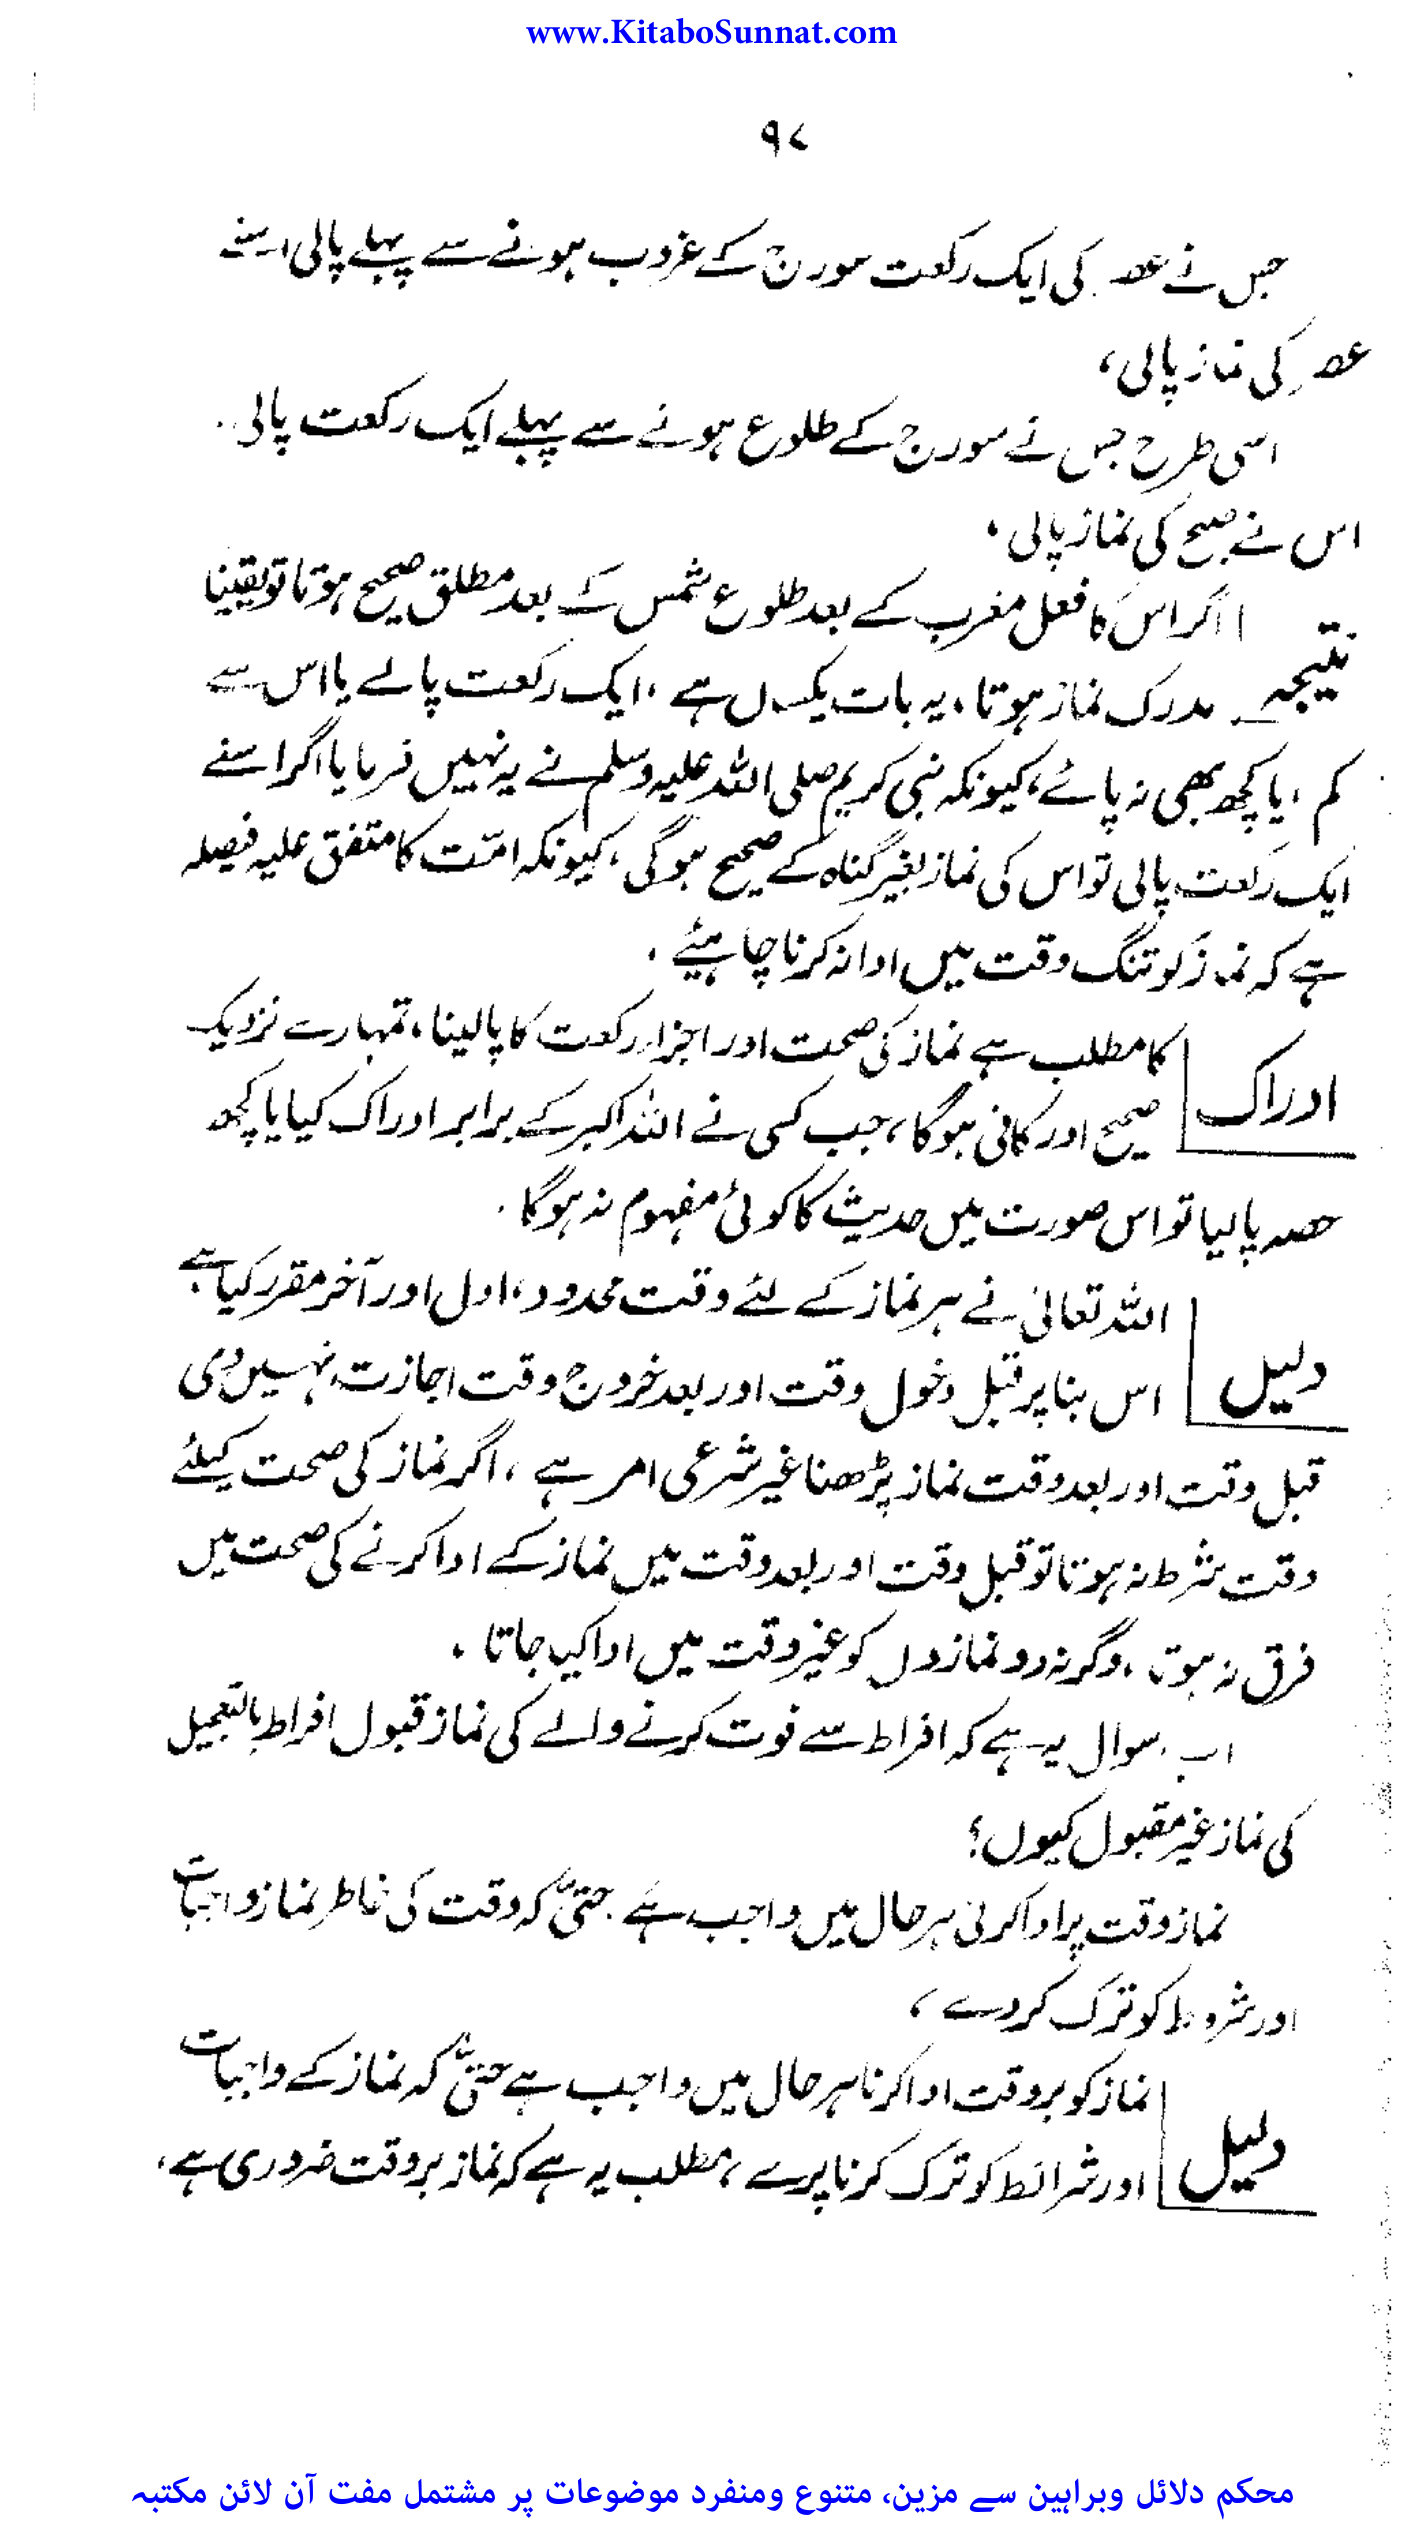 www.KitaboSunnat.com
۹۷
جس نے عصر کی ایک رکعت سورج کے غروب ہونے سے پہلے پالی اسنے
عصر کی نماز پالی،
اسی طرح جس نے سورج کے طلوع ہونے سے پہلے ایک رکعت پالی۔
اس نے صبح کی نماز پالی۔
نتیجہ
اگر اس کا فعل مغرب کے بعد طلوع شمس کے بعد مطلق صحیح ہوتا تو یقینا
مدرک نماز ہوتا، یہ بات یکساں ہے، ایک رکعت پالے یا اس سے
کم، یا کچھ بھی نہ پائے، کیونکہ نبی کریم صلی اللہ علیہ وسلم نے یہ نہیں فرمایا اگر اسنے
ایک رکعت پالی تو اس کی نماز بغیر گناہ کے صحیح ہوگی، کیونکہ امّت کا متفق علیہ فیصلہ
ہے کہ نماز کو تنگ وقت میں ادا نہ کرنا چاہیئے۔
ادراک
کا مطلب ہے نماز کی صحت اور اجزاء رکعت کا پالینا، تمہارے نزدیک
صحیح اور کافی ہوگا، جب کسی نے اللہ اکبر کے برابر ادراک کیا یا کچھ
حصہ پالیا تو اس صورت میں حدیث کا کوئی مفہوم نہ ہوگا۔
دلیل
اللہ تعالیٰ نے ہر نماز کے لئے وقت محدود، اول اور آخر مقرر کیا ہے
اس بنا پر قبل دخول وقت اور بعد خروج وقت اجازت نہیں دی
قبل وقت اور بعد وقت نماز پڑھنا غیر شرعی امر ہے، اگر نماز کی صحت کیلئے
وقت شرط نہ ہوتا تو قبل وقت اور بعد وقت میں نماز کے ادا کرنے کی صحت میں
فرق نہ ہوتا، وگرنہ دو نمازوں کو غیر وقت میں ادا کیا جاتا۔
اب سوال یہ ہے کہ افراط سے فوت کرنے والے کی نماز قبول افراط بالتعجیل
کی نماز غیر مقبول کیوں؟
نماز وقت پر ادا کرنی ہر حال میں واجب ہے۔ حتیٰ کہ وقت کی خاطر نماز واجبات
اور شروط کو ترک کردے،
دلیل
نماز کو بروقت ادا کرنا ہر حال میں واجب ہے حتیٰ کہ نماز کے واجبات
اور شرائط کو ترک کرنا پرے، مطلب یہ ہے کہ نماز بروقت ضروری ہے،
محکم دلائل وبراہین سے مزین، متنوع ومنفرد موضوعات پر مشتمل مفت آن لائن مکتبہ